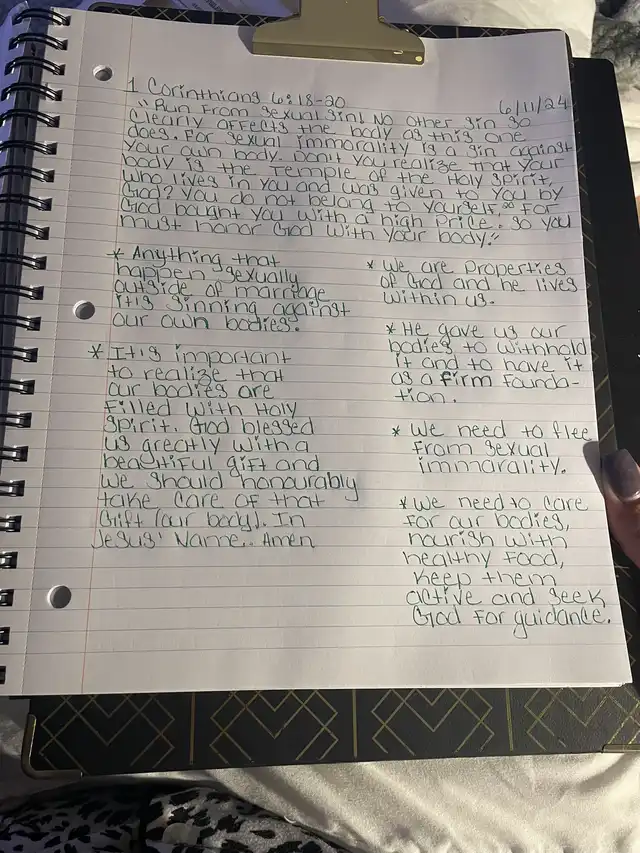 1 Corinthians 6:18-20
6/11/24
"Run from sexual sin! No other sin so
clearly affects the body as this one
does. For sexual immorality is a sin against
your own body. Don't you realize that your
body is the Temple of the Holy Spirit,
Who lives in you and was given to you by
God? You do not belong to yourself, 20 For
God bought you with a high Price. So you
must honor God with your body."
* Anything that
happen sexually
outside of marriage
it is sinning against
our own bodies.
* It is important
to realize that
our bodies are
filled with Holy
Spirit. God blessed
us greatly with a
beautiful gift and
we should honourably
take care of that
Gift (our body). In
Jesus' Name. Amen
* We are Properties
of God and he lives
within us.
* He gave us our
bodies to withhold
it and to have it
as a firm founda-
tion.
* We need to flee
from sexual
immorality.
* We need to care
for our bodies,
nourish with
healthy food,
keep them
active and seek
God for guidance.